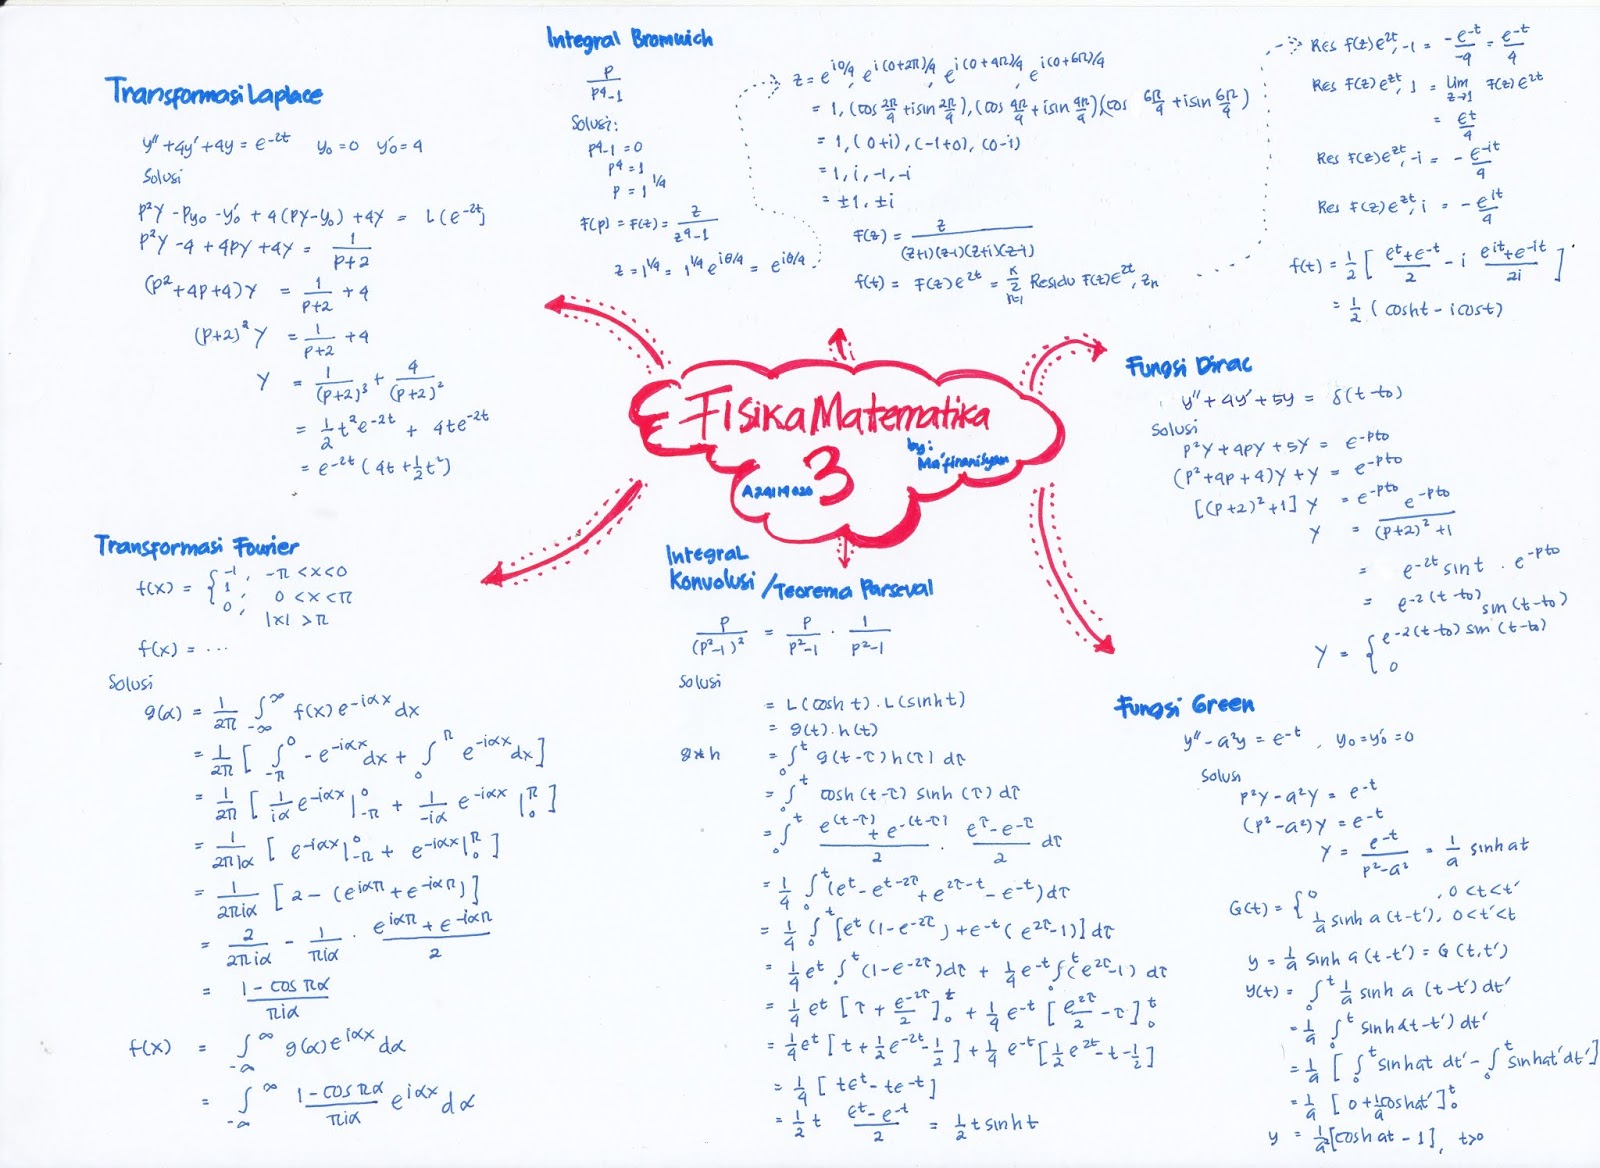 Fisika Matematika
3
by:
Ma'firanisyan
A24119020
Transformasi Laplace
y'' + 4y' + 4y = e^-2t   y₀ = 0   y₀' = 4
Solusi
p²Y - py₀ - y₀' + 4(pY - y₀) + 4Y = L(e^-2t)
p²Y - 4 + 4pY + 4Y = 1/(p+2)
(p² + 4p + 4)Y = 1/(p+2) + 4
(p+2)² Y = 1/(p+2) + 4
Y = 1/(p+2)³ + 4/(p+2)²
= 1/2 t² e^-2t + 4te^-2t
= e^-2t (4t + 1/2 t²)
Integral Bromwich
p/(p⁴-1)
Solusi:
p⁴-1 = 0
p⁴ = 1
p = 1^1/4
F(p) = F(z) = z/(z⁴-1)
z = 1^1/4 = 1^1/4 e^iθ/4 = e^iθ/4
z = e^i0/4, e^i(0+2π)/4, e^i(0+4π)/4, e^i(0+6π)/4
= 1, (cos 2π/4 + i sin 2π/4), (cos 4π/4 + i sin 4π/4), (cos 6π/4 + i sin 6π/4)
= 1, (0+i), (-1+0), (0-i)
= 1, i, -1, -i
= ±1, ±i
F(z) = z/((z+1)(z-1)(z+i)(z-i))
f(t) = F(z)e^zt = Σ_{n=1}^{k} Residu F(z)e^zt, zₙ
Res F(z)e^zt, -1 = -e^-t/-4 = e^-t/4
Res F(z)e^zt, 1 = lim_{z→1} F(z)e^zt
= e^t/4
Res F(z)e^zt, -i = -e^-it/4
Res F(z)e^zt, i = -e^it/4
f(t) = 1/2 [ (e^t + e^-t)/2 - i (e^it + e^-it)/2i ]
= 1/2 (cosh t - i cos t)
Fungsi Dirac
y'' + 4y' + 5y = δ(t-t₀)
Solusi
p²Y + 4pY + 5Y = e^-pt₀
(p² + 4p + 4)Y + Y = e^-pt₀
[(p+2)² + 1] Y = e^-pt₀
Y = e^-pt₀/((p+2)² + 1)
= e^-2t sin t . e^-pt₀
= e^-2(t-t₀) sin(t-t₀)
Y = { e^-2(t-t₀) sin(t-t₀)
0
Transformasi Fourier
f(x) = { -1, -π < x < 0
1, 0 < x < π
0, |x| > π
f(x) = ...
Solusi
g(α) = 1/2π ∫_{-∞}^{∞} f(x) e^-iαx dx
= 1/2π [ ∫_{-π}^{0} -e^-iαx dx + ∫_{0}^{π} e^-iαx dx ]
= 1/2π [ 1/iα e^-iαx |_{-π}^{0} + 1/-iα e^-iαx |_{0}^{π} ]
= 1/2πiα [ e^-iαx |_{-π}^{0} + e^-iαx |_{0}^{π} ]
= 1/2πiα [ 2 - (e^iαπ + e^-iαπ) ]
= 2/2πiα - 1/πiα . (e^iαπ + e^-iαπ)/2
= (1 - cos πα)/πiα
f(x) = ∫_{-∞}^{∞} g(α) e^iαx dα
= ∫_{-∞}^{∞} (1 - cos πα)/πiα e^iαx dα
Integral
Konvolusi / Teorema Parseval
p/(p²-1)² = p/(p²-1) . 1/(p²-1)
Solusi
= L(cosh t) . L(sinh t)
= g(t) . h(t)
g*h = ∫_{0}^{t} g(t-τ) h(τ) dτ
= ∫_{0}^{t} cosh(t-τ) sinh(τ) dτ
= ∫_{0}^{t} (e^(t-τ) + e^-(t-τ))/2 . (e^τ - e^-τ)/2 dτ
= 1/4 ∫_{0}^{t} (e^t - e^t-2τ + e^2τ-t - e^-t) dτ
= 1/4 ∫_{0}^{t} [e^t (1-e^-2τ) + e^-t (e^2τ-1)] dτ
= 1/4 e^t ∫_{0}^{t} (1-e^-2τ) dτ + 1/4 e^-t ∫_{0}^{t} (e^2τ-1) dτ
= 1/4 e^t [τ + e^-2τ/2]_{0}^{t} + 1/4 e^-t [e^2τ/2 - τ]_{0}^{t}
= 1/4 e^t [t + 1/2 e^-2t - 1/2] + 1/4 e^-t [1/2 e^2t - t - 1/2]
= 1/4 [te^t - te^-t]
= 1/2 t (e^t - e^-t)/2 = 1/2 t sinh t
Fungsi Green
y'' - a²y = e^-t , y₀ = y₀' = 0
Solusi
p²Y - a²Y = e^-t
(p² - a²)Y = e^-t
Y = e^-t/(p²-a²) = 1/a sinh at
G(t) = { 0 , 0 < t < t'
1/a sinh a(t-t'), 0 < t' < t
y = 1/a sinh a(t-t') = G(t,t')
y(t) = ∫_{0}^{t} 1/a sinh a(t-t') dt'
= 1/a ∫_{0}^{t} sinh (t-t') dt'
= 1/a [ ∫_{0}^{t} sinh at dt' - ∫_{0}^{t} sinh at' dt' ]
= 1/a [ 0 + 1/a cosh at' ]_{0}^{t}
y = 1/a² [cosh at - 1], t>0